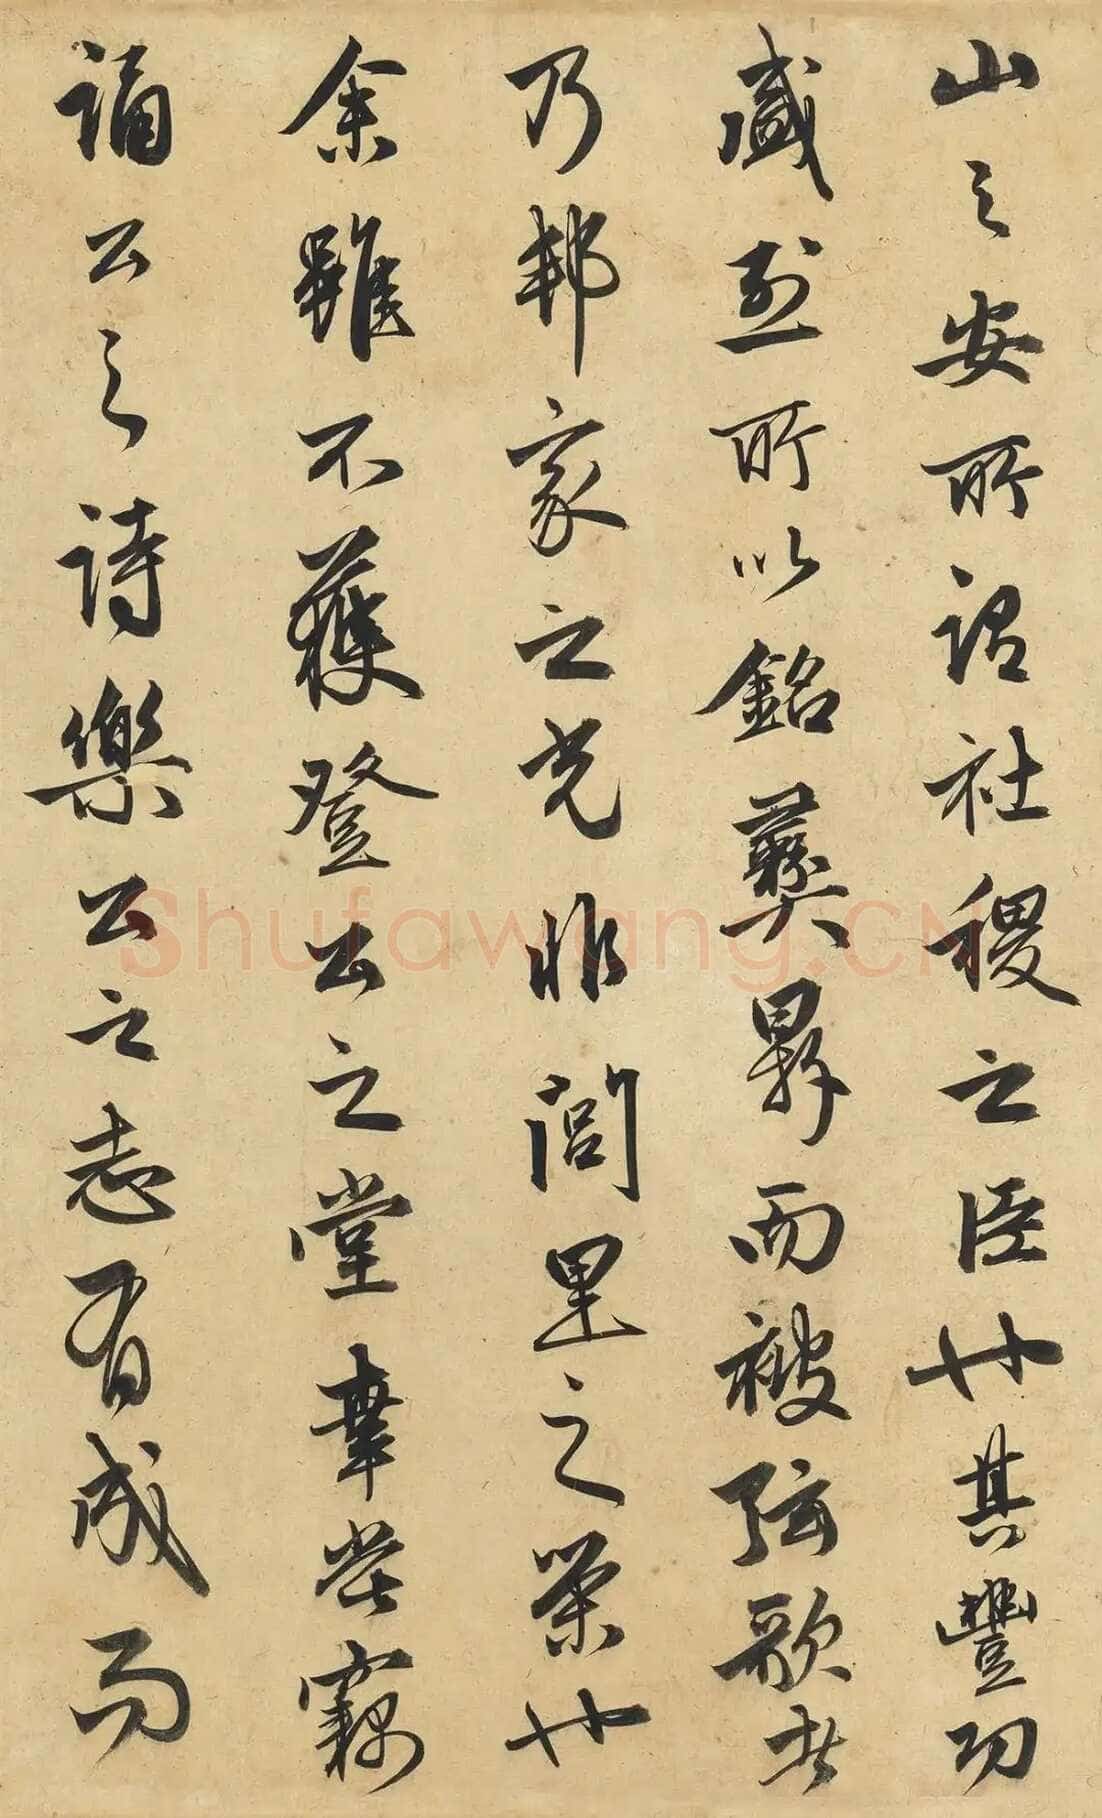 山之安所謂社稷之臣也其豐功
盛烈所以銘彝鼎而被弦歌者
乃邦家之光非閭里之榮也
余雖不獲登公之堂幸嘗竊
誦公之詩樂公之志有成而
Shufawang.CN